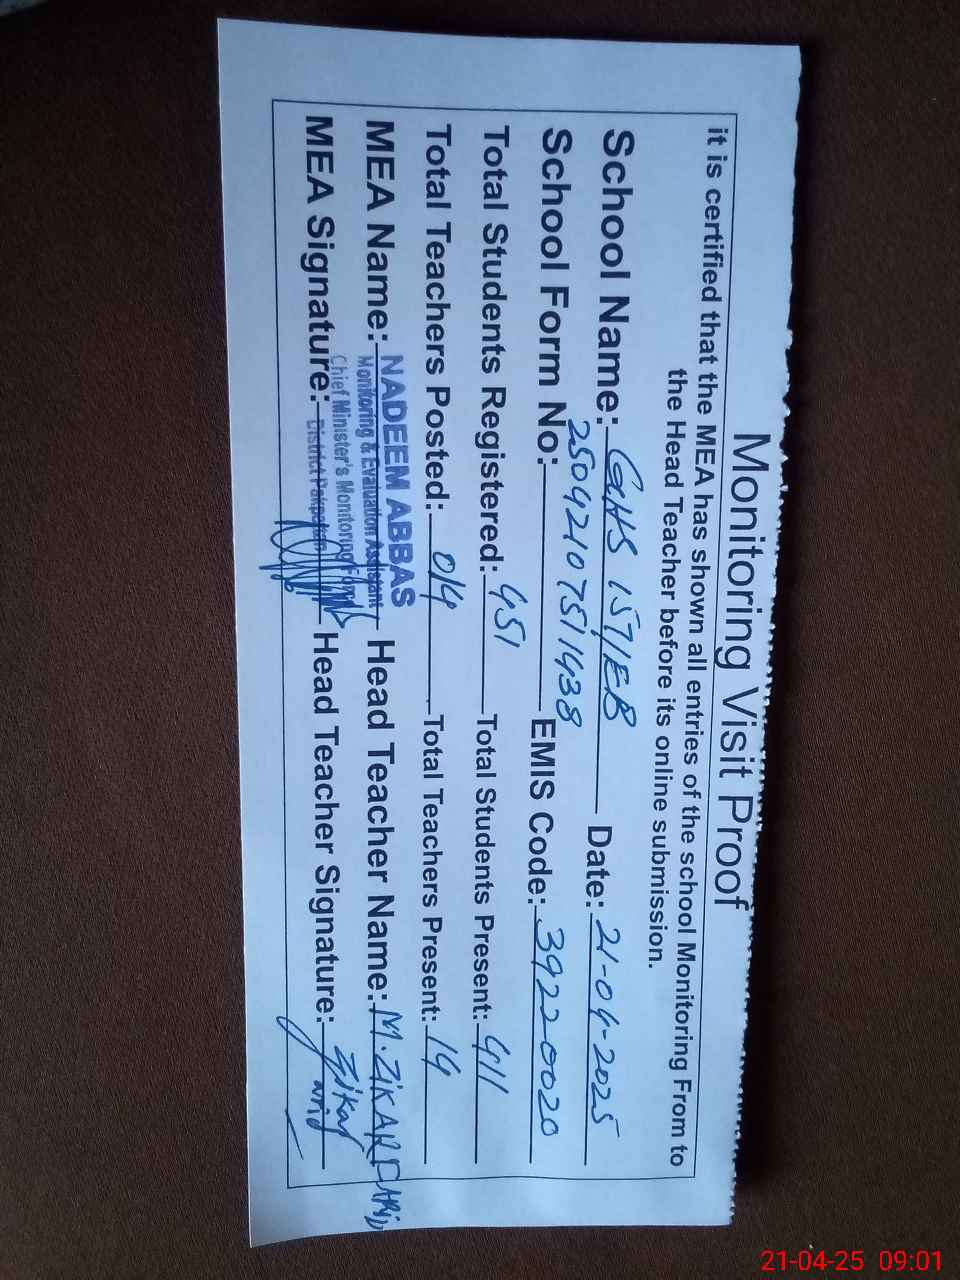 Monitoring Visit Proof
it is certified that the MEA has shown all entries of the school Monitoring From to
the Head Teacher before its online submission.
School Name: GHS 157/EB Date: 21-04-2025
School Form No: 25042107511438 EMIS Code: 39220020
Total Students Registered: 451 Total Students Present: 411
Total Teachers Posted: 014 Total Teachers Present: 14
MEA Name: NADEEM ABBAS Head Teacher Name: M. ZIKAR FARID
Monitoring & Evaluation Assistant
Chief Minister's Monitoring Force
MEA Signature: District Pakpattan Head Teacher Signature: Zikar Farid
21-04-25 09:01